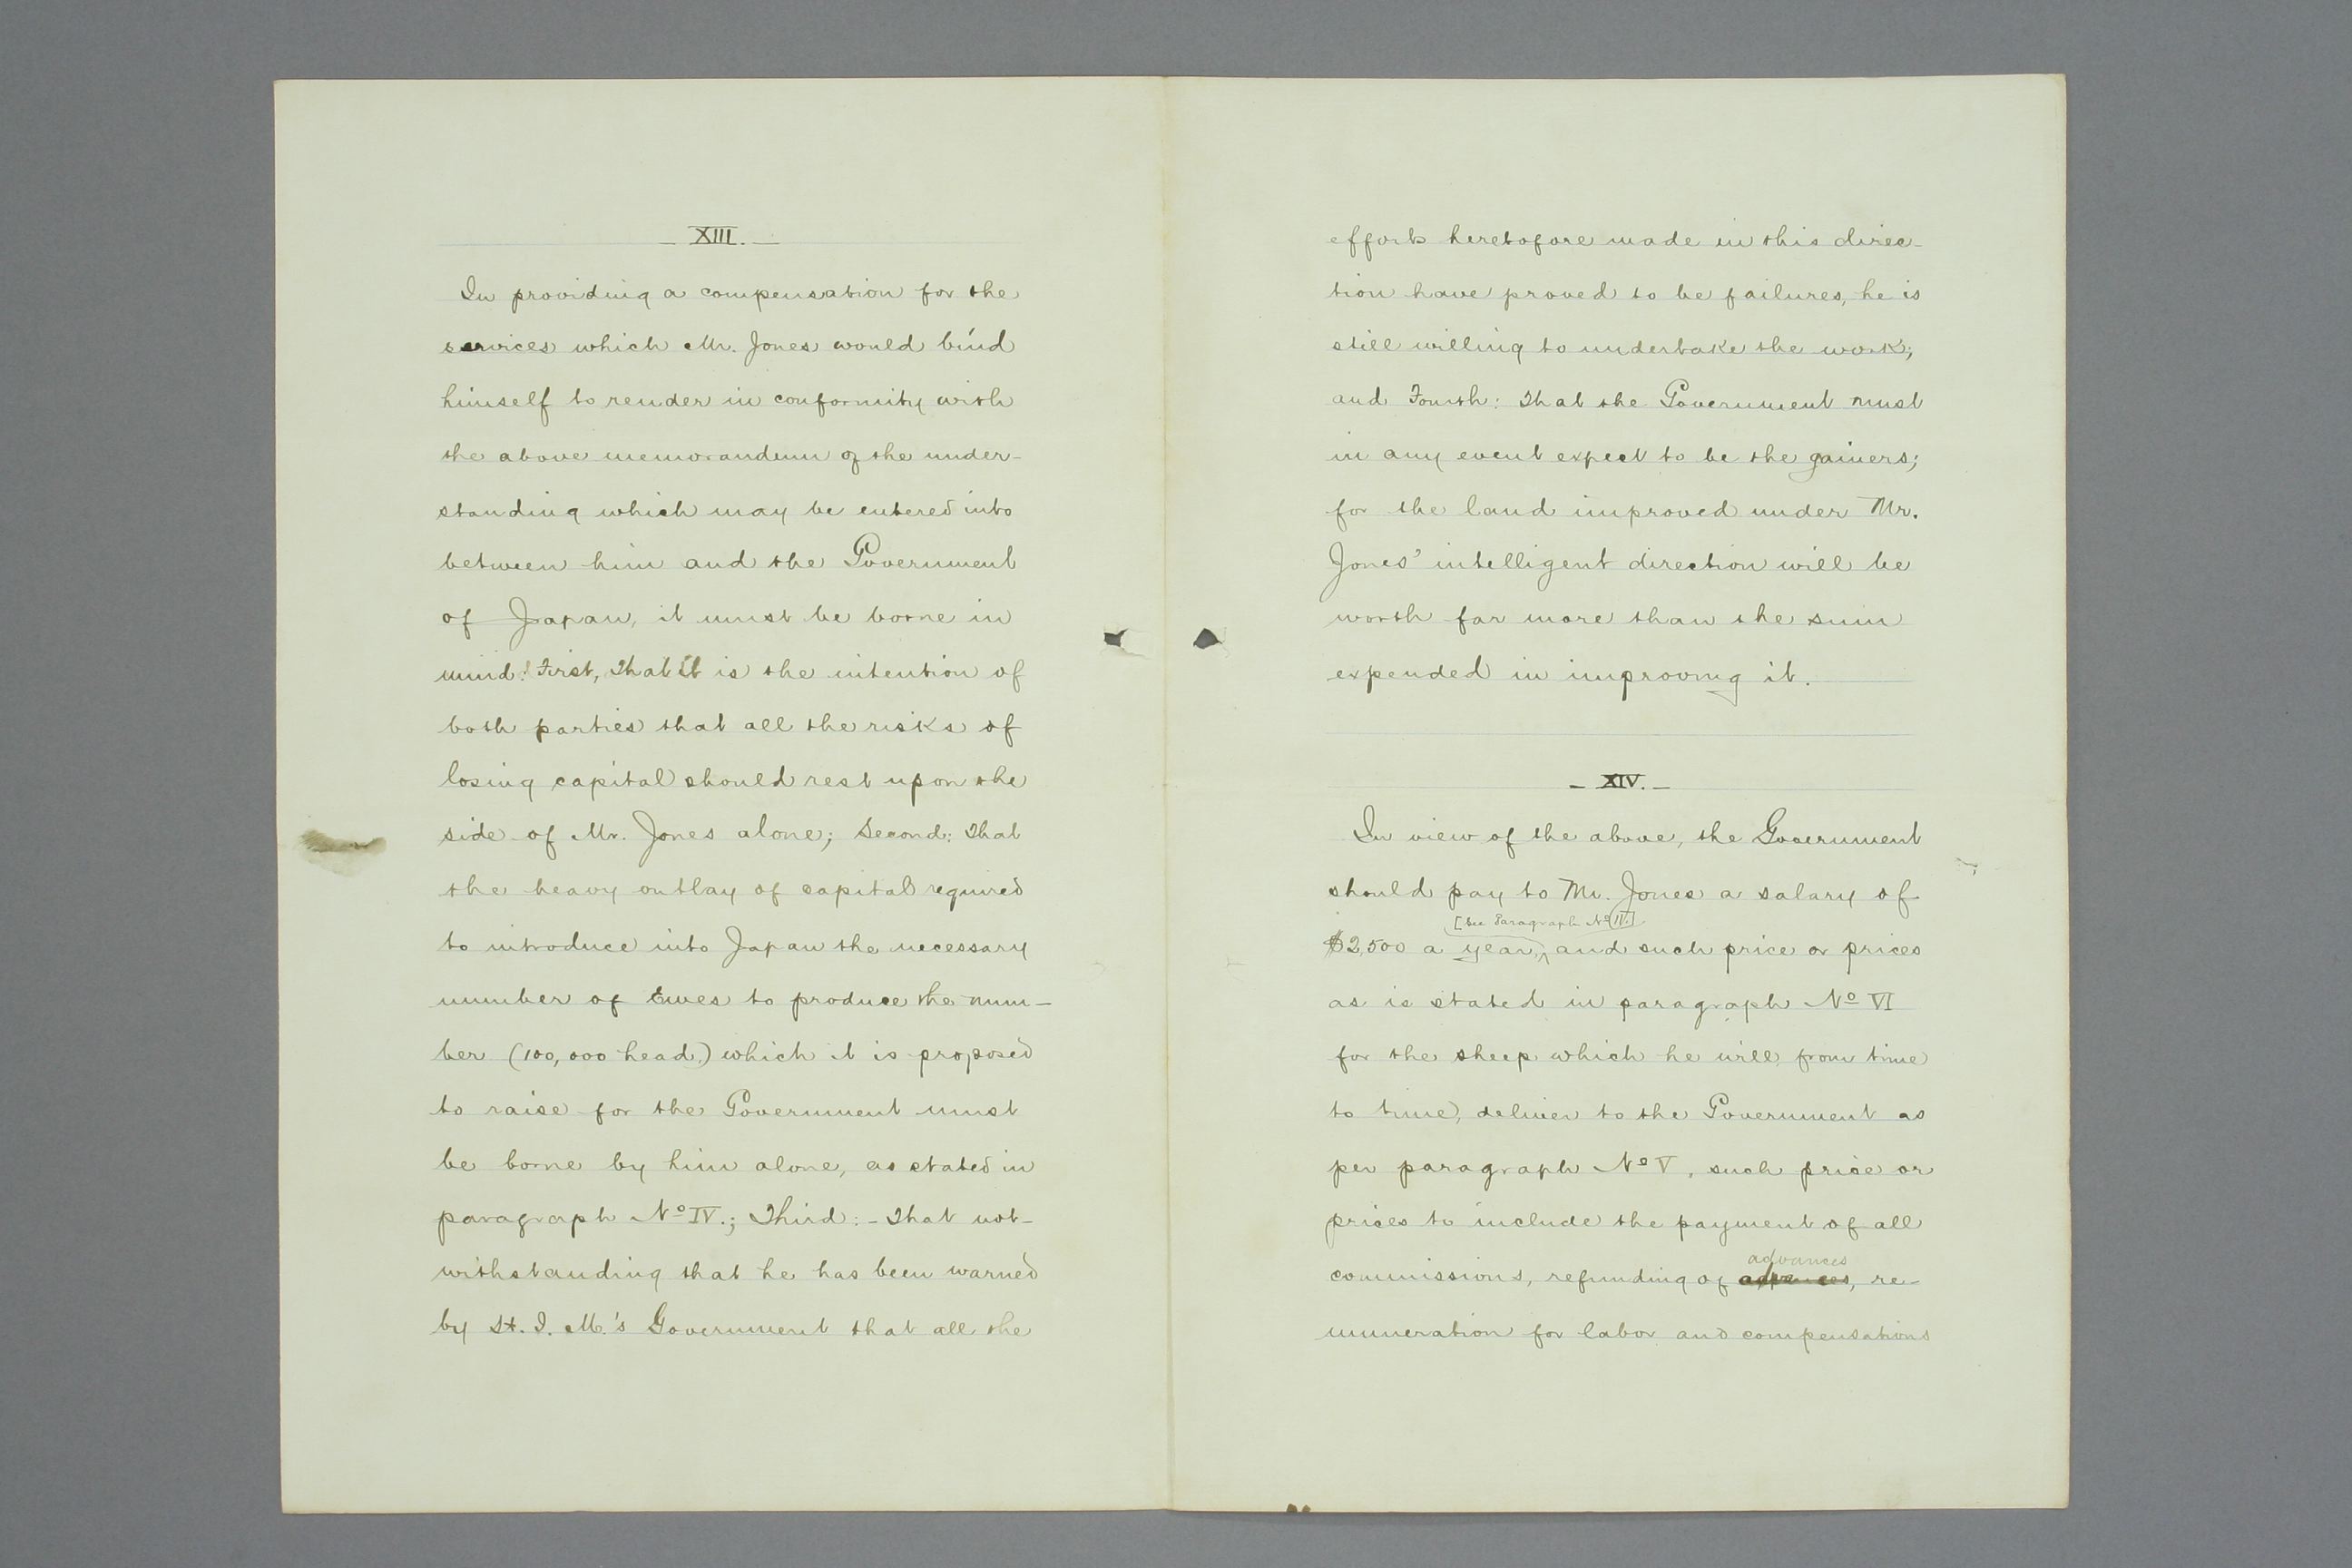 - XIII. -
In providing a compensation for the
services which Mr. Jones would bind
himself to render in conformity with
the above memorandum of the under-
standing which may be entered into
between him and the Government
of Japan, it must be borne in
mind: First, That it is the intention of
both parties that all the risks of
losing capital should rest upon the
side of Mr. Jones alone; Second: That
the heavy outlay of capital required
to introduce into Japan the necessary
number of Ewes to produce the num-
ber (100,000 head,) which it is proposed
to raise for the Government must
be borne by him alone, as stated in
paragraph No IV.; Third: - That not-
withstanding that he has been warned
by H. I. M.'s Government that all the
efforts heretofore made in this direc-
tion have proved to be failures, he is
still willing to undertake the work;
and Fourth: That the Government must
in any event expect to be the gainers;
for the land improved under Mr.
Jones' intelligent direction will be
worth far more than the sum
expended in improving it.
- XIV. -
In view of the above, the Government
should pay to Mr. Jones a salary of
[See Paragraph No IV.]
$2,500 a year, and such price or prices
as is stated in paragraph No VI
for the sheep which he will, from time
to time, deliver to the Government as
per paragraph No V, such price or
prices to include the payment of all
advances
commissions, refunding of advances, re-
muneration for labor and compensations